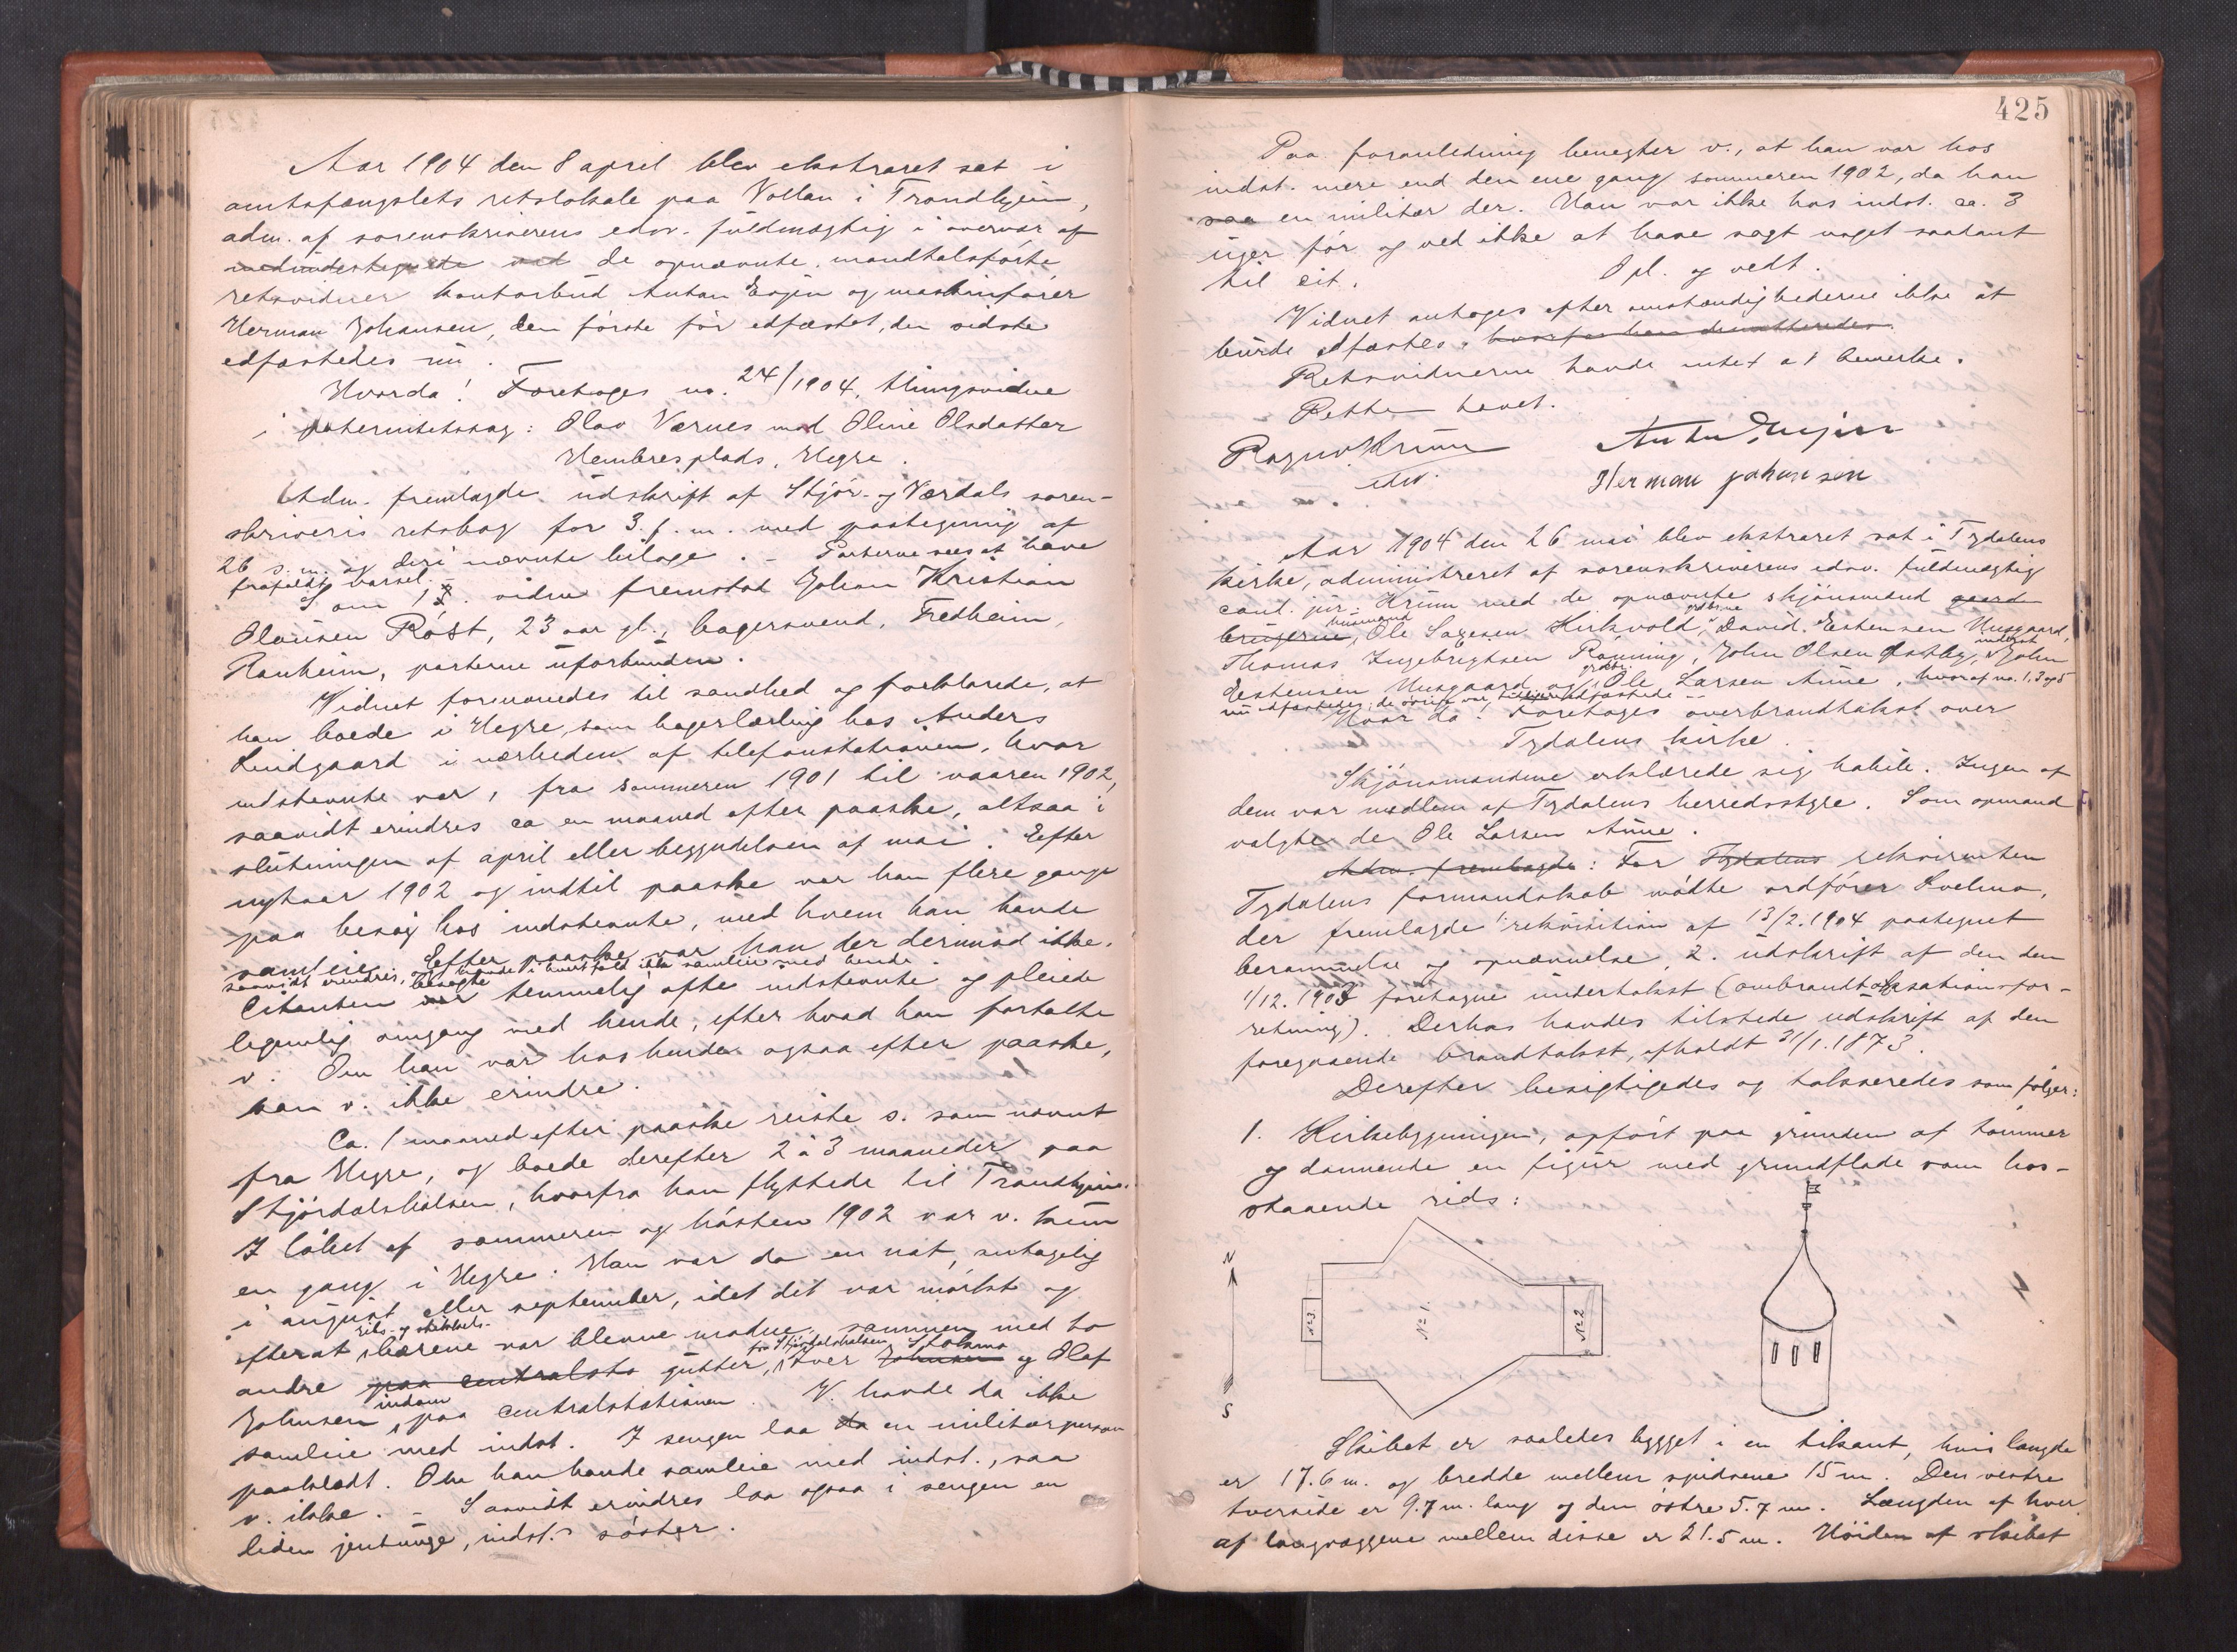 Aar 1904 den 8 april blev ekstraret sat i
amtsfængslets retslokale paa Vollan i Trondhjem,
adm. af sorenskriverens edsv. fuldmægtig i overvær af
de opnævnte, mandtalsførte
retsvidner kontorbud Anton Eugen og maskinfører
Herman Johansen, den første før edfæstet, den sidste
edfæstedes nu. —
Hvorda! Foretoges no. 24/1904, thingsvidne
i paternitetssag: Olav Værnes mod Oline Olsdatter
Hembresplads, Hegre.
Adm. fremlagde udskrift af Stjør- og Værdals soren-
skriveris retsbog for 3. f. m. med paategning af
26 s. m. og deri nævnte bilage. – Parterne sees at have
frafaldt varsel. –
Som 1. vidne fremstod Johan Kristian
Olausen Røst, 23 aar gl., bagersvend, Fredheim,
Ranheim, parterne uforbunden.
Vidnet formanedes til sandhed og forklarede, at
han boede i Hegre, som bagerlærling hos Anders
Lundgaard i nærheden af telefonstationen, hvor
indstevnte var, fra sommeren 1901 til vaaren 1902,
saavidt erindres ca en maaned efter paaske, altsaa i
slutningen af april eller begyndelsen af mai. Efter
nytaar 1902 og indtil paaske var han flere gange
paa besøg hos indstevnte, med hvem han havde
samleie. Efter paaske var han der derimod ikke,
saavidt erindres, og havde i hvert fald ikke samleie med hende.
besøgte
Citanten var temmelig ofte indstevnte og pleiede
legemlig omgang med hende, efter hvad han fortalte
v. Om han var hos hende ogsaa efter paaske,
kan v. ikke erindre.
Ca. 1 maaned efter paaske reiste s. som nævnt
fra Hegre, og boede derefter 2 à 3 maaneder paa
Stjørdalshalsen, hvorfra han flyttede til Trondhjem.
I løbet af sommeren og høsten 1902 var v. kun
en gang i Hegre: Han var da en nat, antagelig
i august eller september, idet det var mørkt og
ribs- og stikkels-
efterat bærene var blevne modne, sammen med to
fra Stjørdalshalsen Stokmo
andre paa centralsta gutter, Iver Johnsen og Olaf
indom
Johnsen, paa centralstationen. V. havde da ikke
samleie med indst. I sengen laa da en militærperson
paaklædt. Om han havde samleie med indst., saa
v. ikke. – Saavidt erindres laa ogsaa i sengen en
liden jentunge, indst.s søster.
425
Paa foranledning benegter v., at han var hos
indst. mere end den ene gang sommeren 1902, da han
saa en militær der. Han var ikke hos indst. ca. 3
uger før og ved ikke at have sagt noget saadant
til cit. Opl. og vedt.
Vidnet antoges efter omstændighederne ikke at
burde edfæstes, hvorfor han demitteredes.
Retsvidnerne havde intet at bemerke.
Retten hævet.
Ragnv Krum Anton Eugen
edsv. Herman Johansen
Aar 1904 den 26 mai blev ekstraret sat i Tydalens
kirke, administreret af sorenskriverens edsv. fuldmægtig
cand. jur. Krum med de opnævnte skjønsmænd gaard
husmand grdbrne
brugerne, Ole Larsen Kirkvold, David Estensen Unsgaard,
inderst
Thomas Ingebrigtsen Rønning, John Olsen Østby, John
grdbr.
Estensen Unsgaard og Ole Larsen Aune, hvoraf no. 1, 3 og 5
nu edfæstedes; de øvrige var tidligere edfæstede –
Hvor da! Foretoges overbrandtakst over
Tydalens kirke.
Skjønsmændene erklærede sig habile. Ingen af
dem var medlem af Tydalens herredsstyre. Som opmand
valgte de Ole Larsen Aune.
Adm. fremlagde: For Tydalens rekvirenten
Tydalens formandskab mødte ordfører Lvelmo,
der fremlagde 1: rekvisition af 13/2. 1904 paategnet
berammelse og opnævnelse, 2. udskrift af den den
1/12. 1903 foretagne undertakst (ombrandtaksationsfor-
retning). Derhos havdes tilstede udskrift af den
foregaaende brandtakst, afholdt 31/1. 1873.
Derefter besigtigedes og takseredes som følger:
1. Kirkebygningen, opført paa grunden af tømmer
og dannende en figur med grundflade som hos-
staaende rids:
N
S
No 3.
No 1.
No 2
Skibet er saaledes bygget i en tikant, hvis længde
er 17.6 m. og bredde mellem spidsene 15 m. Den vestre
tverside er 9.7 m. lang og den østre 5.7 m. Længden af hver
af langvæggene mellem disse er 21.5 m. Høiden af skibet